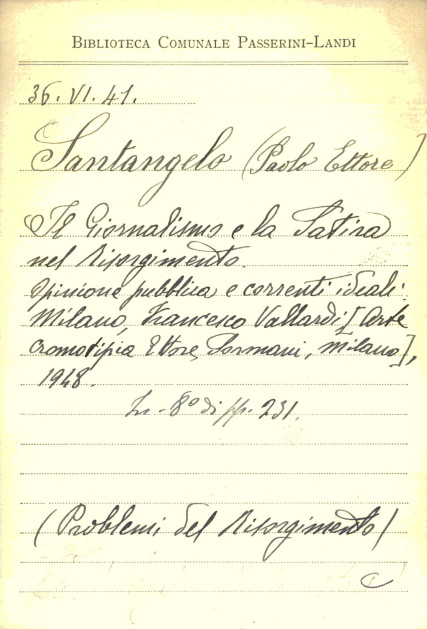 BIBLIOTECA COMUNALE PASSERINI-LANDI
36. VI. 41.
Santangelo (Paolo Ettore)
Il Giornalismo e la Satira
nel Risorgimento.
Opinione pubblica e correnti ideali.
Milano, Francesco Vallardi [Arte
cromotipia Ettore Sormani, Milano],
1948.
In-8° di pp. 231.
(Problemi del Risorgimento)
C